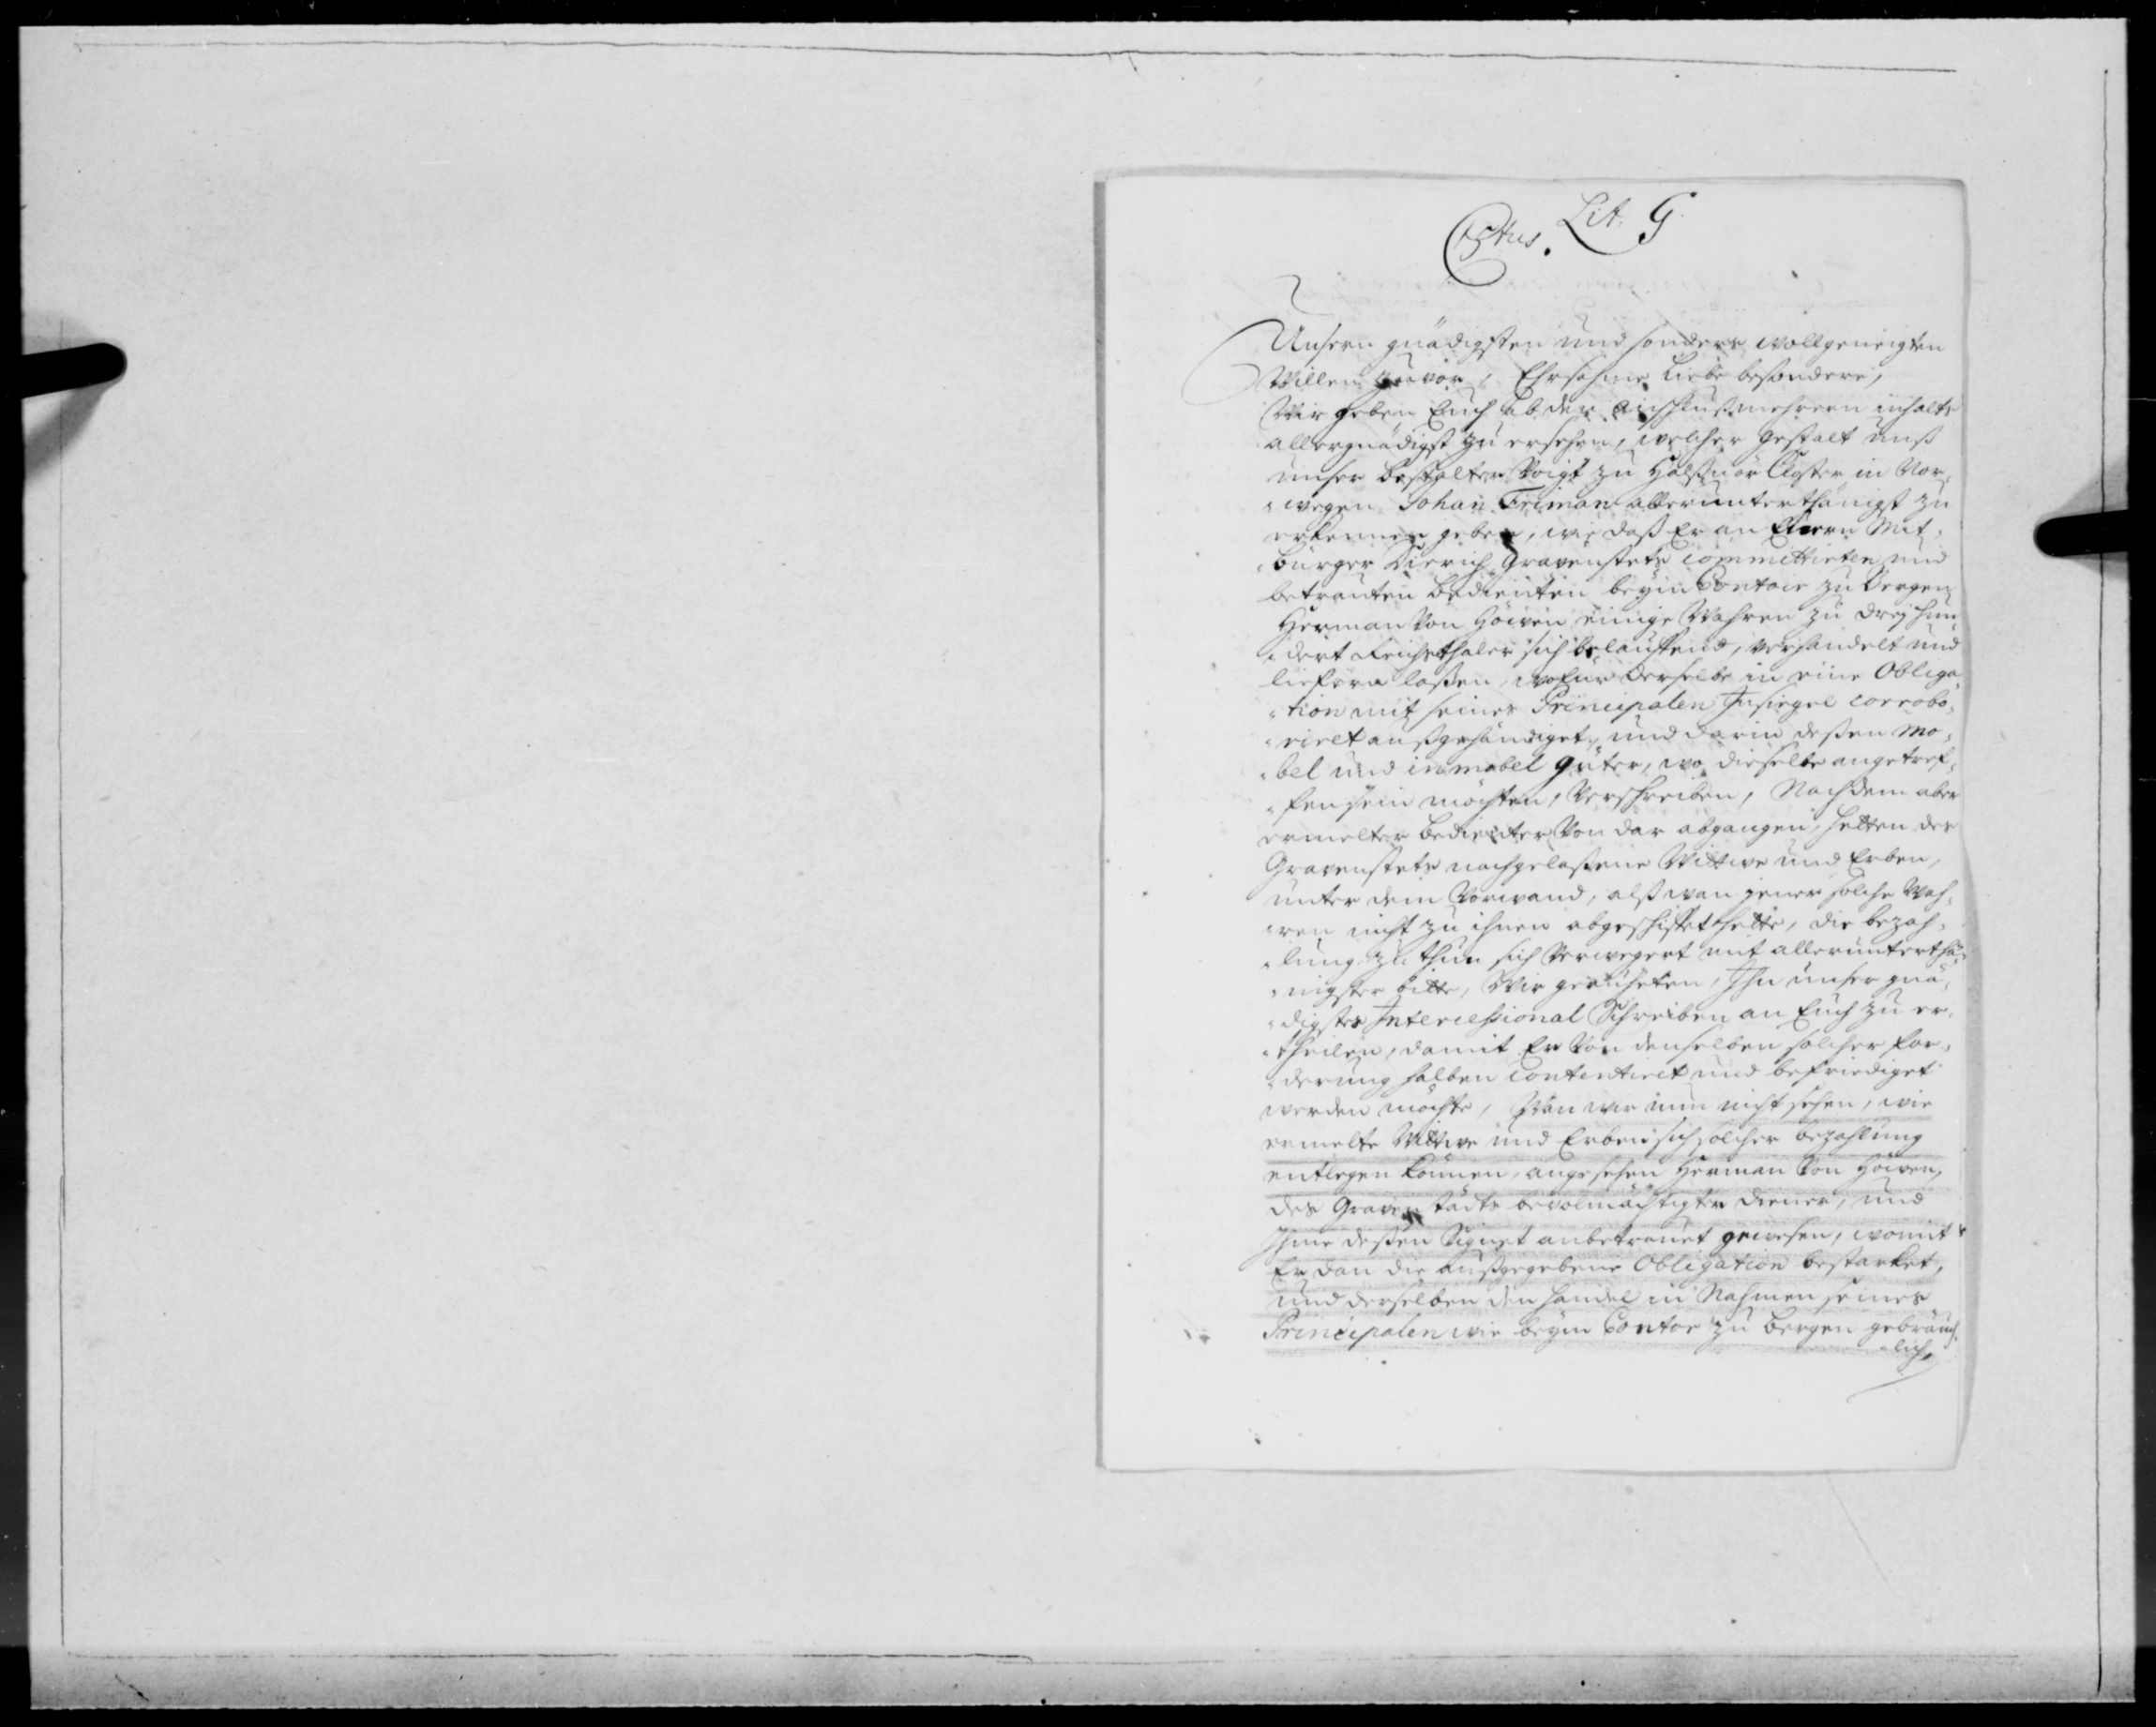 Lit. G
Unsern gnädigsten und sonders wollgeneigten
Willen zuvor, Ehrsahme Liebe besondere,
Wir geben Euch ab der mehrern inhalts
allergnädigst zu ersehen, welcher gestalt unß
unser bestalter Voigt zu Halßnöe Closter in Nor-
wegen Johan Friman allerunterthänigst zu
erkennen geben, wie daß Er an Eurrn Mit-
bürger Dierich Gravenstets committirten und
betrauten bedienten beym Contoir zu Bergen
Herman Von Höiven einige Wahren zu drey hun
dert Reichsthaler sich belauffend, verhandelt und
liefern laßen, wofür derselbe in eine Obliga
tion mit seines Principalen Insiegel corrobo-
riret außgehändiget, und darin deßen mo-
bel und inmobel güter, wo dieselbe angetref-
fen sein möchten, Verschreiben, Nachdem aber
ermelter bedienter Von dar abgangen, hetten der
Gravenstets nachgelaßene Wittwe und Erben,
unter dem Vorwand, alß wan jener solche Wah-
ren nicht zu ihnen abgeschiffet hette, die bezah-
lung zu thun sich Verwegert mit allerunterthä-
nigster bitte, Wir geruheten, Ihn unser gnä-
digstes Intercessional Schreiben an Euch zu er-
theilen, damit Er Von denselben solcher for-
derung halben contentiret und befriediget
werden möchte, Wan wir nun nicht sehen, wie
ermelte Wittwe und Erben sich solcher bezahlung
entlegen können, angesehen Herman Von Höiven,
des Gravenstädts bevolmächtigter diener, und
Ihme deßen Signet anbetrauet gewesen, womit
Er dan die außgegebene Obligation bestarket,
und derselben den handel in Nahmen seines
Principalen wie beym Contor zu Bergen gebräuch
lich